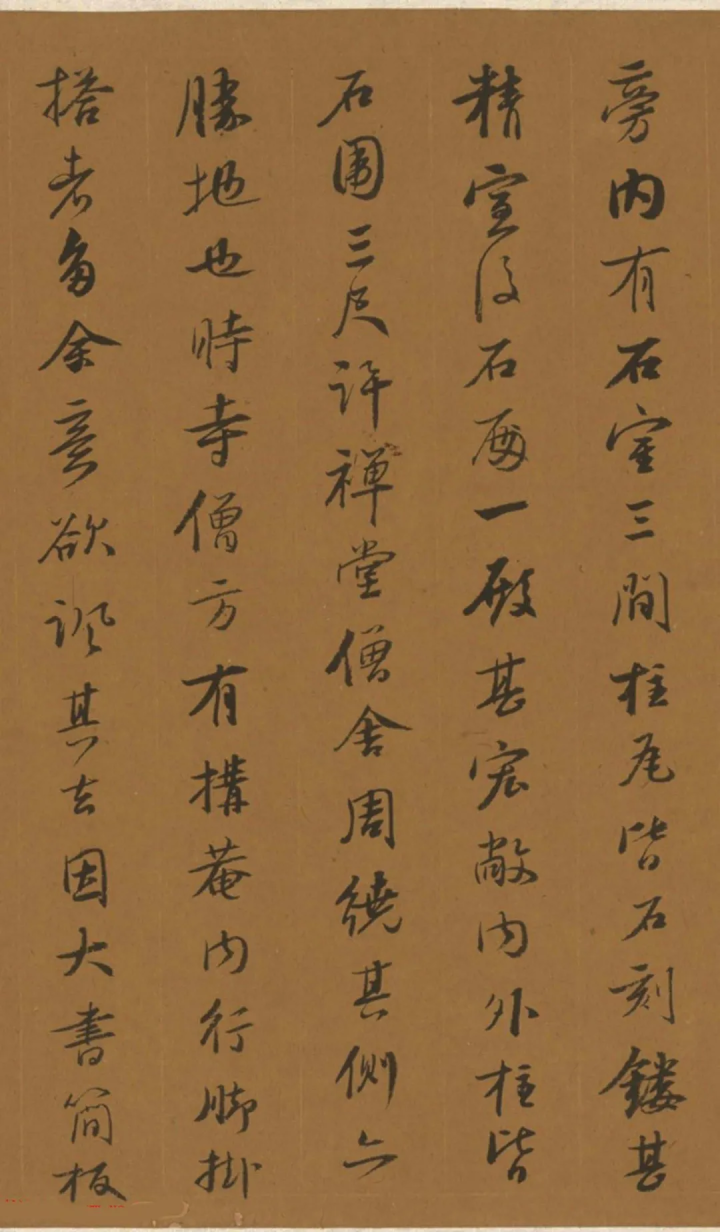 旁内有石室三間柱尾皆石刻鏤甚
精室後石砌一殿甚宏敞内外柱皆
石圍三尺許禪堂僧舍周繞其側亦
勝地也時寺僧方有搆菴内行脚掛
搭者多余意欲諷其去因大書簡板